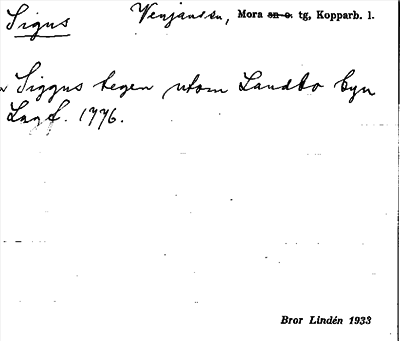 Sigus Venjansån, Mora sn o. tg, Kopparb. l.
Siggus tegen utom Landbo byn
Lagf. 1776.
Bror Lindén 1933